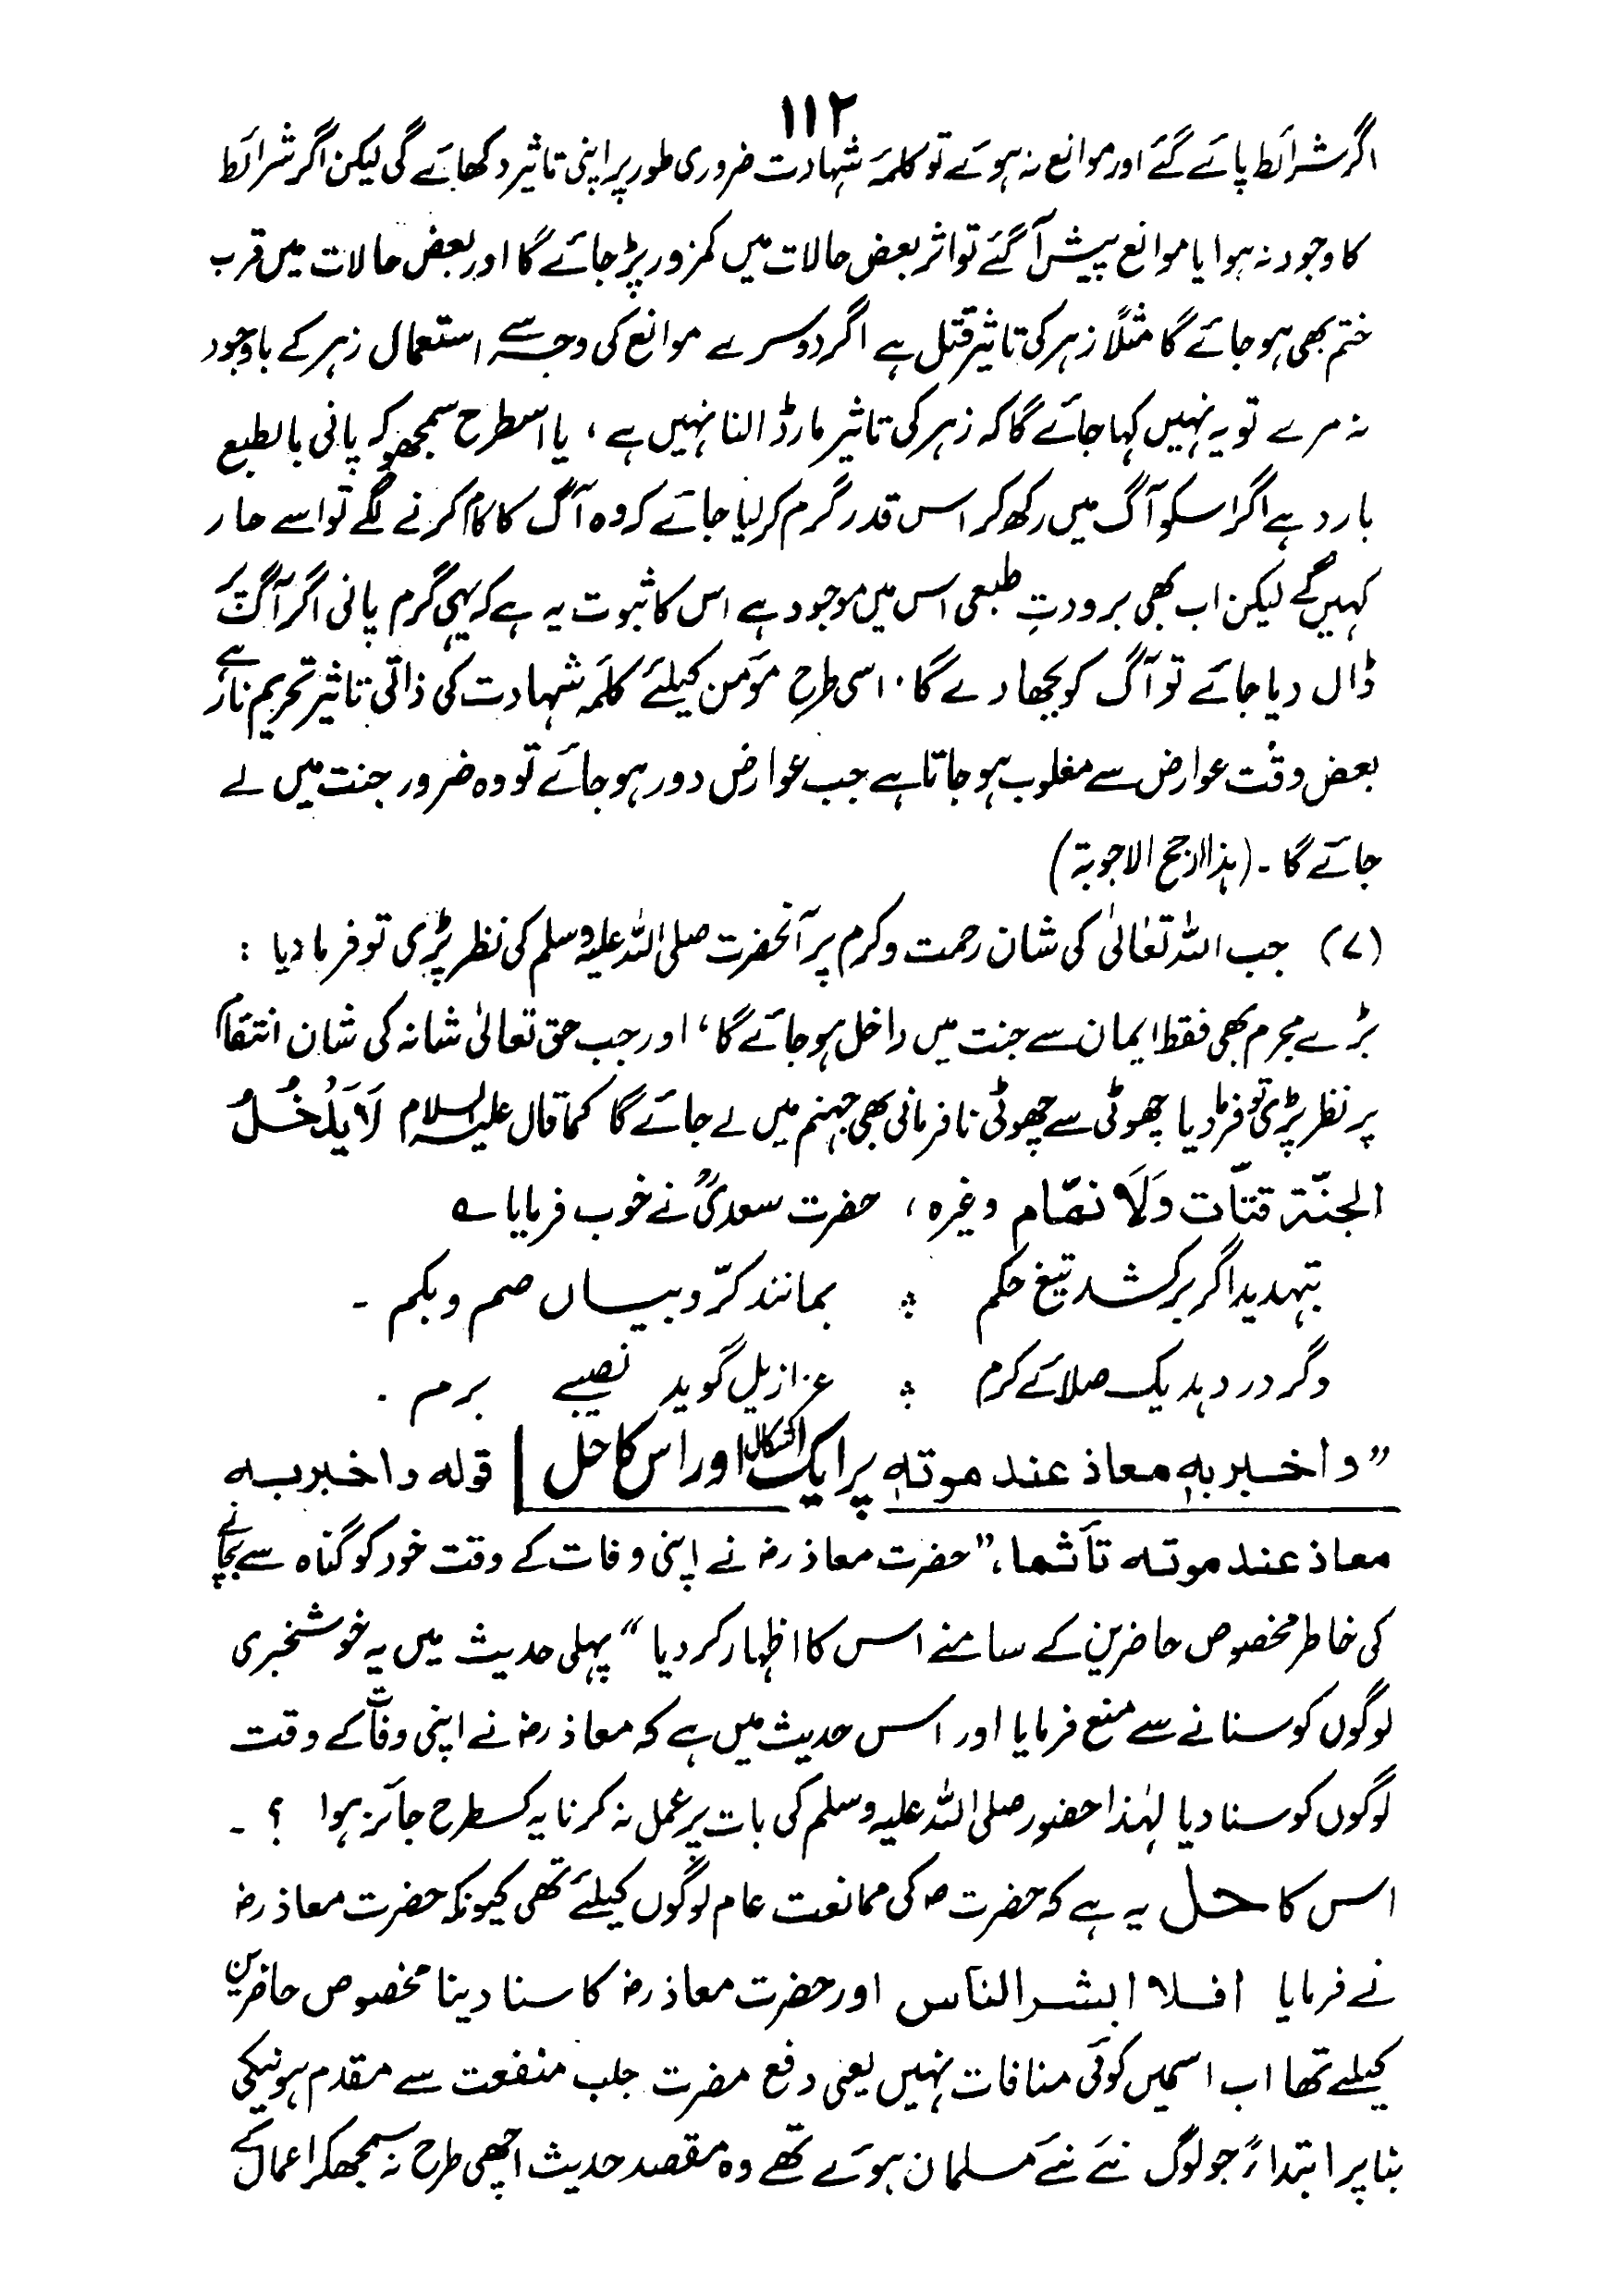 ۱۱۲
اگر شرائط پائے گئے اور موانع نہ ہوئے تو کلمۂ شہادت ضروری طور پر اپنی تاثیر دکھائے گی لیکن اگر شرائط
کا وجود نہ ہوا یا موانع پیش آگئے تو اثر بعض حالات میں کمزور پڑ جائے گا اور بعض حالات میں قرب
ختم بھی ہو جائے گا مثلاً زہر کی تاثیر قتل ہے اگر دوسرے موانع کی وجہ سے استعمال زہر کے باوجود
نہ مرے تو یہ نہیں کہا جائے گا کہ زہر کی تاثیر مار ڈالنا نہیں ہے ، یا اسطرح سمجھو کہ پانی بالطبع
بارد ہے اگر اسکو آگ میں رکھ کر اس قدر گرم کر لیا جائے کہ وہ آگ کا کام کرنے لگے تو اسے حار
کہیں گے لیکن اب بھی برودتِ طبعی اس میں موجود ہے اس کا ثبوت یہ ہے کہ یہی گرم پانی اگر آگ پر
ڈال دیا جائے تو آگ کو بجھا دے گا ۔ اسی طرح مؤمن کیلئے کلمۂ شہادت کی ذاتی تاثیر تحریم نار ہے
بعض وقت عوارض سے مغلوب ہو جاتا ہے جب عوارض دور ہو جائے تو وہ ضرور جنت میں لے
جائے گا ۔ (ہذا ارجح الاجوبۃ)
(۷) جب اللہ تعالیٰ کی شان رحمت و کرم پر آنحضرت صلی اللہ علیہ وسلم کی نظر پڑی تو فرما دیا :
بڑے مجرم بھی فقط ایمان سے جنت میں داخل ہو جائے گا ، اور جب حق تعالیٰ شانہ کی شان انتقام
پر نظر پڑی تو فرما دیا چھوٹی سے چھوٹی نافرمانی بھی جہنم میں لے جائے گا کما قال علیہ السلام لَا یَدْخُلُ
الجنّۃ قتّات وَلَا نمّام وغیرہ ، حضرت سعدیؒ نے خوب فرمایا ؎
بتہدید اگر برکشد تیغ حکم ؞ بمانند کرّوبیاں صم و بکم ۔
وگر در دہد یک صلائے کرم ؞ عزازیل گوید نصیبے برم .
”واخبر بہٖ معاذ عند موتہٖ پر ایک اشکال اور اس کا حل | قولہ واخبر بہ
معاذ عند موتہ تأثما ، ”حضرت معاذ رض نے اپنی وفات کے وقت خود کو گناہ سے بچانے
کی خاطر مخصوص حاضرین کے سامنے اس کا اظہار کر دیا “ پہلی حدیث میں یہ خوشخبری
لوگوں کو سنانے سے منع فرمایا اور اس حدیث میں ہے کہ معاذ رض نے اپنی وفات کے وقت
لوگوں کو سنا دیا لہٰذا حضور صلی اللہ علیہ وسلم کی بات پر عمل نہ کرنا یہ کسطرح جائز ہوا ؟ ۔
اس کا حل یہ ہے کہ حضرت ص کی ممانعت عام لوگوں کیلئے تھی کیونکہ حضرت معاذ رض
نے فرمایا افلا ابشر الناس اور حضرت معاذ رض کا سنا دینا مخصوص حاضرین
کیلئے تھا اب اسمیں کوئی منافات نہیں یعنی دفع مضرت جلب منفعت سے مقدم ہونیکی
بنا پر ابتداءً جو لوگ نئے نئے مسلمان ہوئے تھے وہ مقصد حدیث اچھی طرح نہ سمجھکر اعمال کے